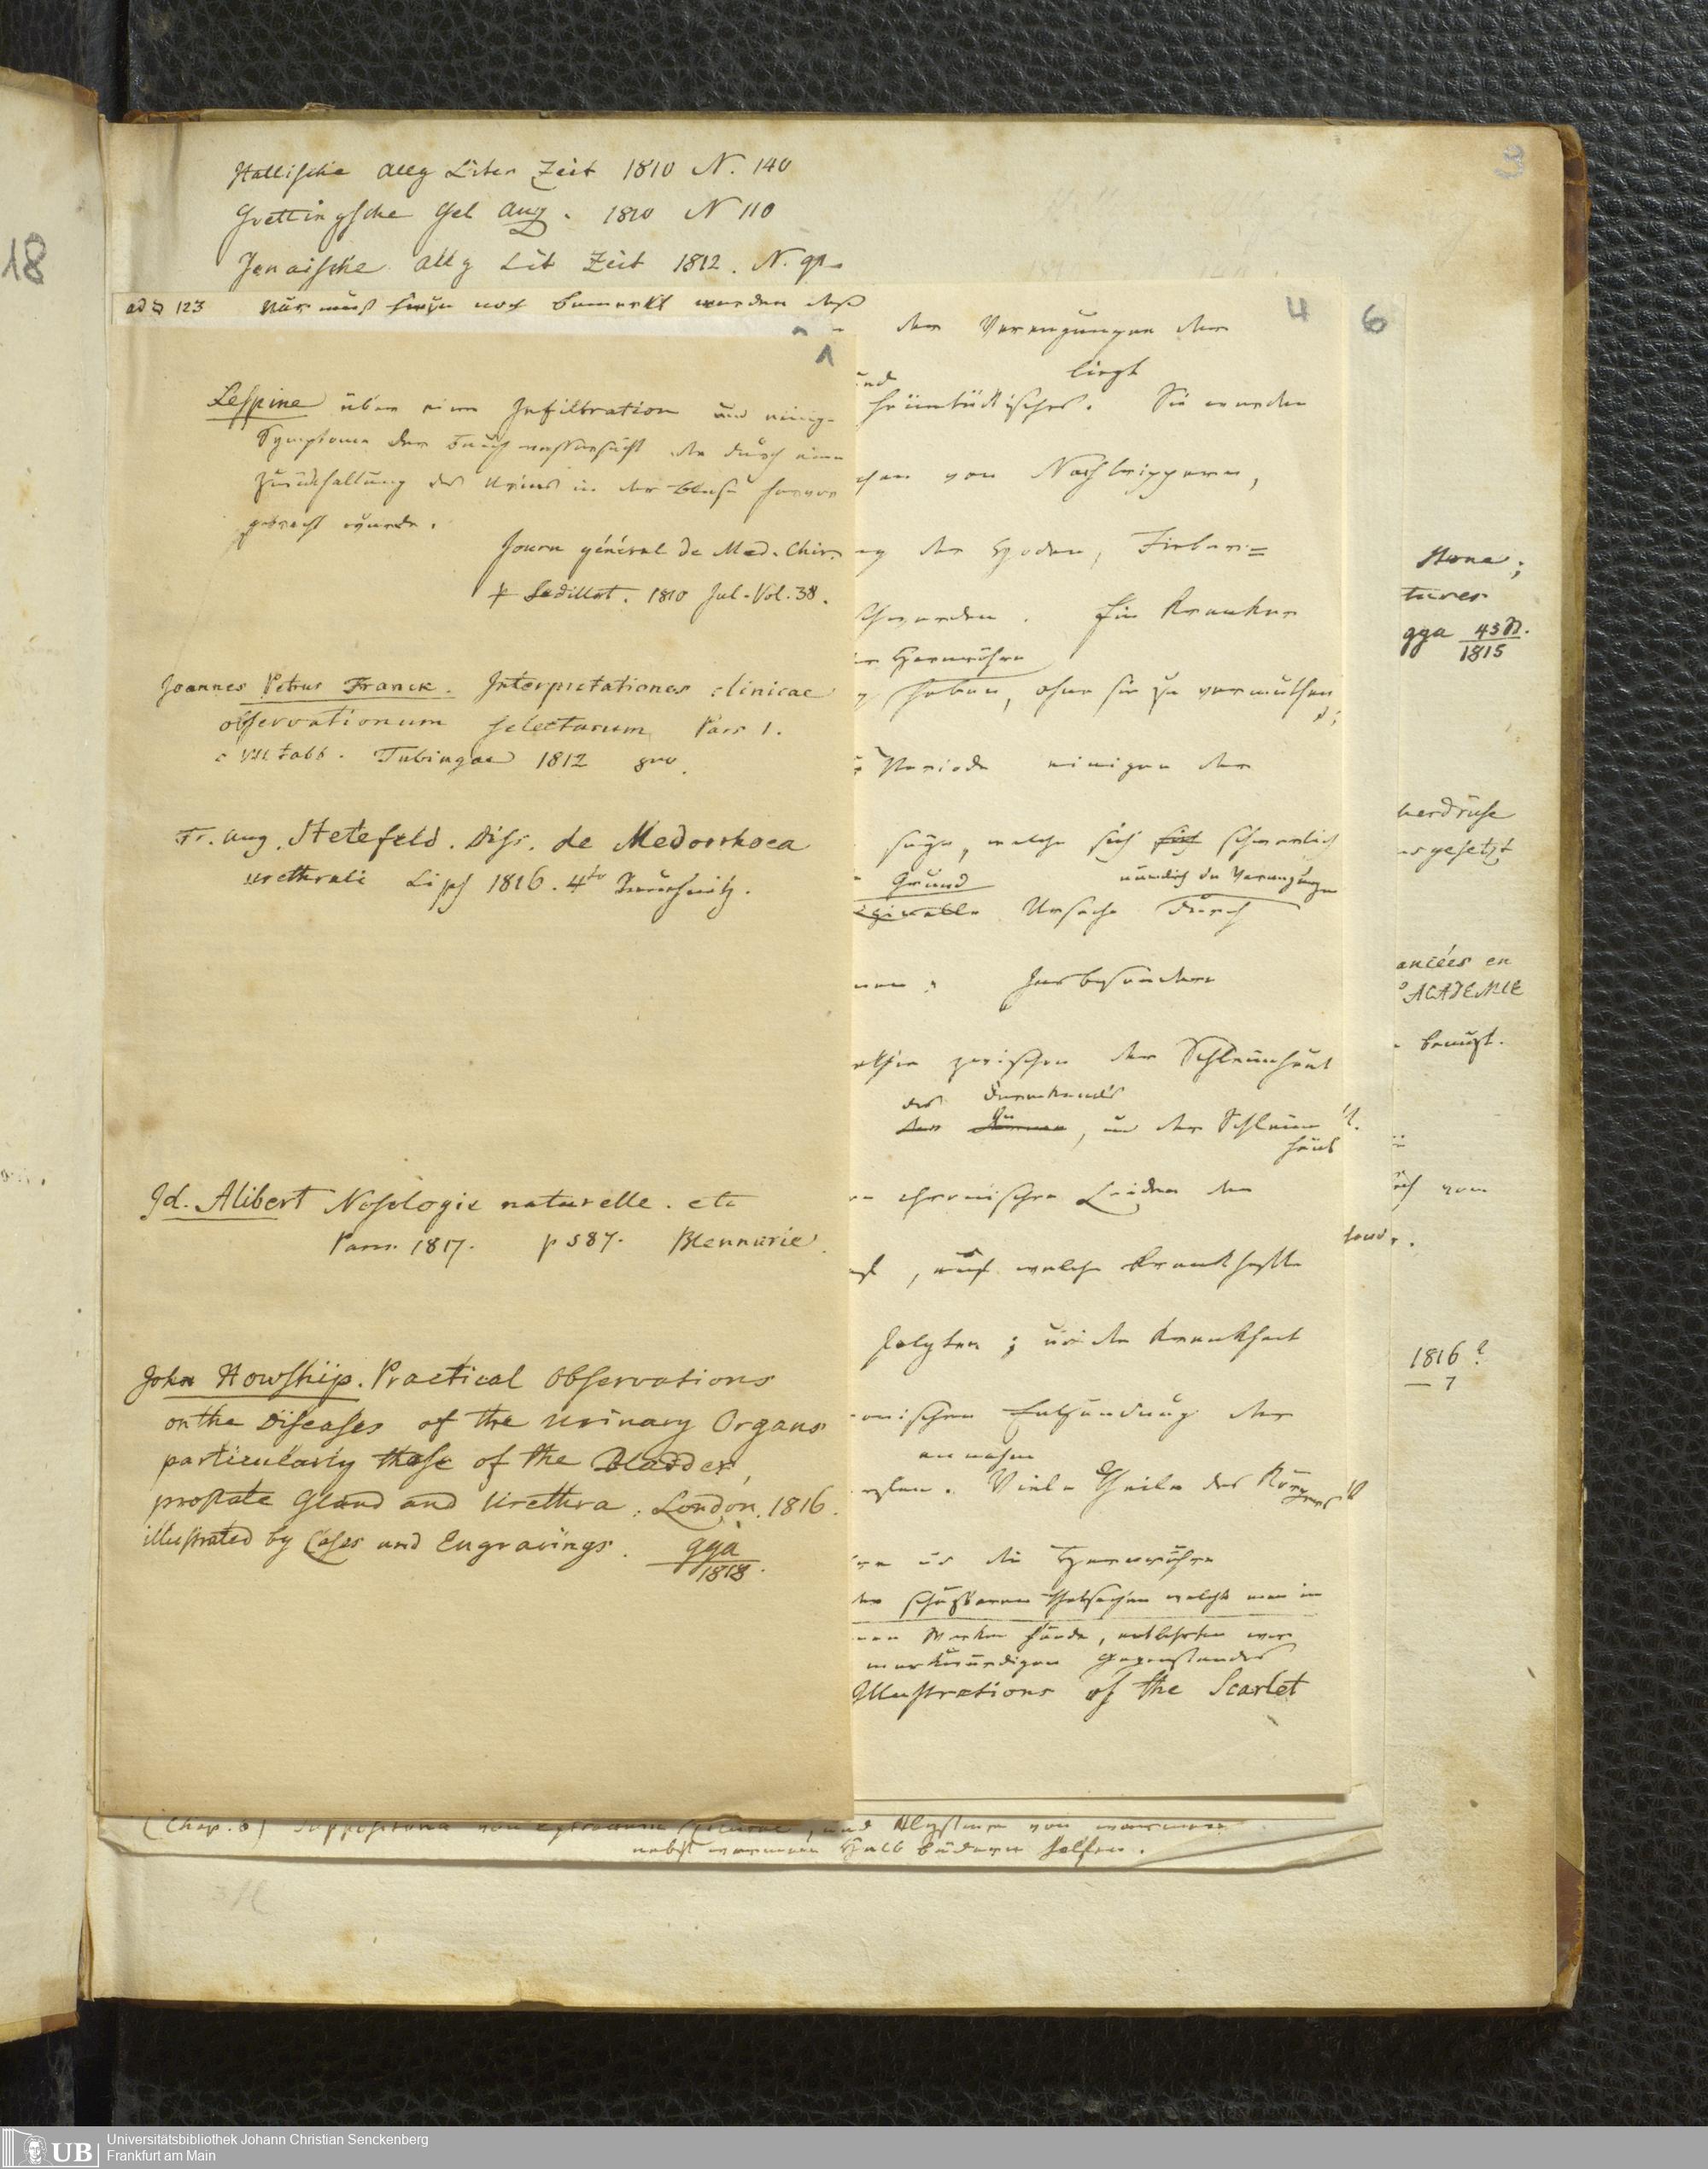 18
3
Hallische Allg Liter Zeit 1810 N. 140
Goettingsche Gel Anz. 1810 N 110
Jenaische Allg Lit Zeit 1812. N. 91.
123 Nur muß hierzu noch bemerkt werden daß
1
Lespine über eine Infiltration und einige
Symptome der Bauchwassersucht die durch eine
Zurückhaltung des Urins in der Blase hervor
gebracht wurde.
Journ général de Med. Chir.
p Sedillot. 1810 Jul. Vol. 38.
Joannes Petrus Franck. Interpretationes clinicae
observationum selectarum Pars 1.
c VIII tabb. Tubingae 1812 8vo.
Fr. Aug. Stetefeld. Diss. de Medorrhoea
urethrali Lips 1816. 4to
Jd. Alibert Nosologie naturelle. etc
Paris 1817. p 587. Blennurie.
John Howship. Practical Observations
on the Diseases of the urinary Organs
particularly those of the Bladder,
prostate Gland and Urethra. London. 1816.
illustrated by Cases and Engravings. gga
1818.
4
der Verengungen der
liegt
heimtückisches. Sie wurden
von Nachtrippern,
der Hoden, Fieber=
Ein Kranker
Harnröhre
haben, ohne sie zu vermuthen
Periode einigen der
sagen, welche sich sich schwerlich
Grund nämlich die Verengung
Ursache durch
Insbesondere
zwischen der Schleimhaut
des Darmkanals
der Därme, und der Schleim
haut
chronischen Leiden der
, auf welche krankhafte
folgten; die Krankheit
Entzündung der
annahm
Viele Theile des Körpers
die Harnröhre
schätzbaren Thatsachen welche man in
Werken fände, entlehnten wir
merkwürdigen Gegenstandes
Illustrations of the Scarlet
6
Stone;
tures
gga 43 St.
1815
berdrüse
gesetzt
ancées en
ACADEMIE
benuzt.
von
1816?
— 7
(Chap. 6) und Klystiere von
nebst warmen Halb bädern helfen.
UB
Universitätsbibliothek Johann Christian Senckenberg
Frankfurt am Main